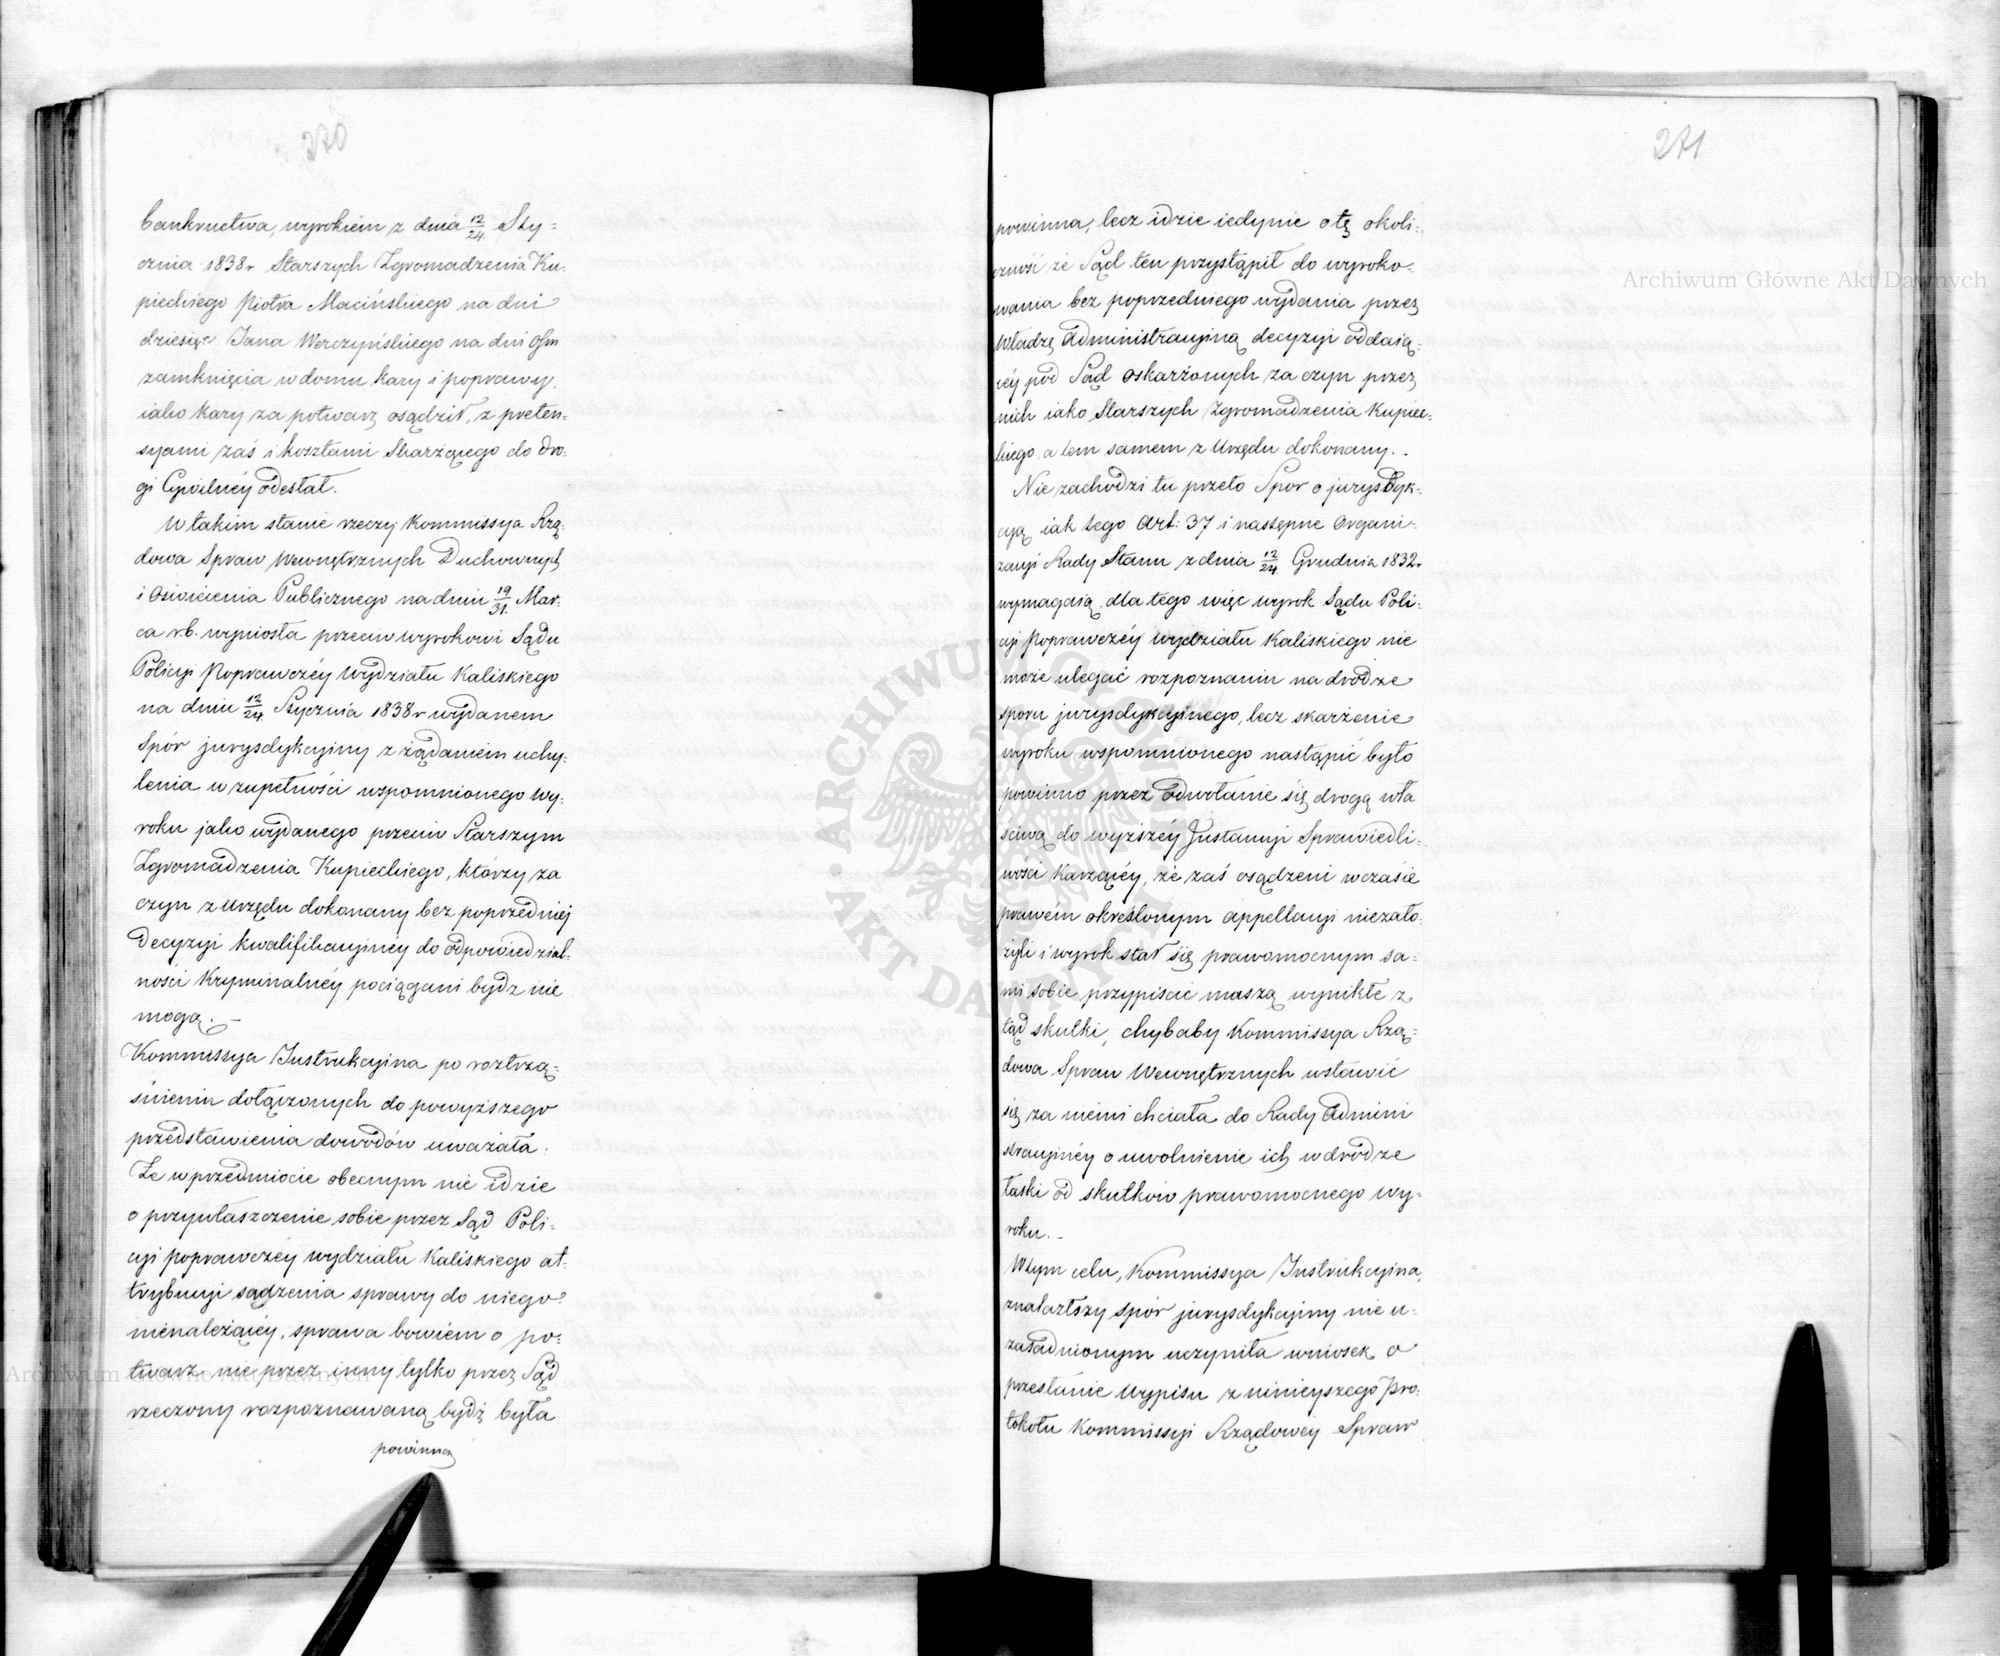 270
bankructwa, wyrokiem z dnia 12/24 Sty=
cznia 1838r Starszych Zgromadzenia Ku=
pieckiego Piotra Macińskiego na dni
dziesięć Jana Werczyńskiego na dni ośm
zamknięcia w domu kary i poprawy,
iako kary za potwarz osądził, z preten=
syami zaś i kosztami Skarżącego do dro=
gi Cywilnéy odesłał.
W takim stanie rzeczy Kommissya Rzą=
dowa Spraw Wewnętrznych Duchownych
i Oświecenia Publicznego na dniu 19/31 Mar=
ca r.b. wyniosła przeciw wyrokowi Sądu
Policyi Poprawczéy Wydziału Kaliskiego
na dniu 12/24 Stycznia 1838r wydanem
Spór jurysdykcyiny z żądaniem uchy=
lenia w zupełności wspomnionego Wy=
roku jako wydanego przeciw Starszym
Zgromadzenia Kupieckiego, którzy za
czyn z Urzędu dokonany bez poprzedniej
Decyzyi kwalifikacyinéy do odpowiedzial=
ności Kryminalnéy pociągani bydz nie
mogą. —
Kommissya Instrukcyina po roztrzą=
śnieniu dołączonych do powyższego
przedstawienia dowodów uważała:
Że w przedmiocie obecnym nie idzie
o przywłaszczenie sobie przez Sąd Poli=
cyi poprawczéy wydziału Kaliskiego at=
trybucyi sądzenia sprawy do niego
nienależącéy, sprawa bowiem o po=
twarz nie przez inny tylko przez Sąd
rzeczony rozpoznawaną bydź była
powinna
271
powinna, lecz idzie iedynie o tę okoli=
czność że Sąd ten przystąpił do wyroko=
wania bez poprzedniego wydania przez
Władzę Administracyiną decyzyi oddaią=
céy pod Sąd oskarżonych za czyn przez
nich iako Starszych Zgromadzenia Kupiec=
kiego a tem samem z Urzędu dokonany. .
Nie zachodzi tu przeto Spór o jurysdyk=
cyą iak tego Art: 37 i następne Organi=
zacyi Rady Stanu z dnia 12/24 Grudnia 1832r
wymagaią, dla tego więc wyrok Sądu Poli=
cyi Poprawczéy Wydziału Kaliskiego nie
może ulegać rozpoznaniu na drodze
sporu jurysdykcyinego, lecz skarżenie
wyroku wspomnionego nastąpić było
powinno przez odwołanie się drogą wła
ściwą do wyższéy Instancyi Sprawiedli=
wości Karzącéy, że zaś osądzeni w czasie
prawem określonym appellacyi niezało=
żyli i wyrok stał się prawomocnym sa=
mi sobie przypisać muszą wynikłe z
tąd skutki, chybaby Kommissya Rzą=
dowa Spraw Wewnętrznych wstawić
się za niemi chciała do Rady Admini
stracyinéy o uwolnienie ich w drodze
łaski od skutków prawomocnego wy=
roku. —
W tym celu, Kommissya Instrukcyina,
znalazłszy spór jurysdykcyiny nie u=
zasadnionym uczyniła wniosek o
przesłanie Wypisu z ninieyszego Pro=
tokołu Kommissyi Rządowéy Spraw
Archiwum Główne Akt Dawnych
Archiwum Główne Akt Dawnych